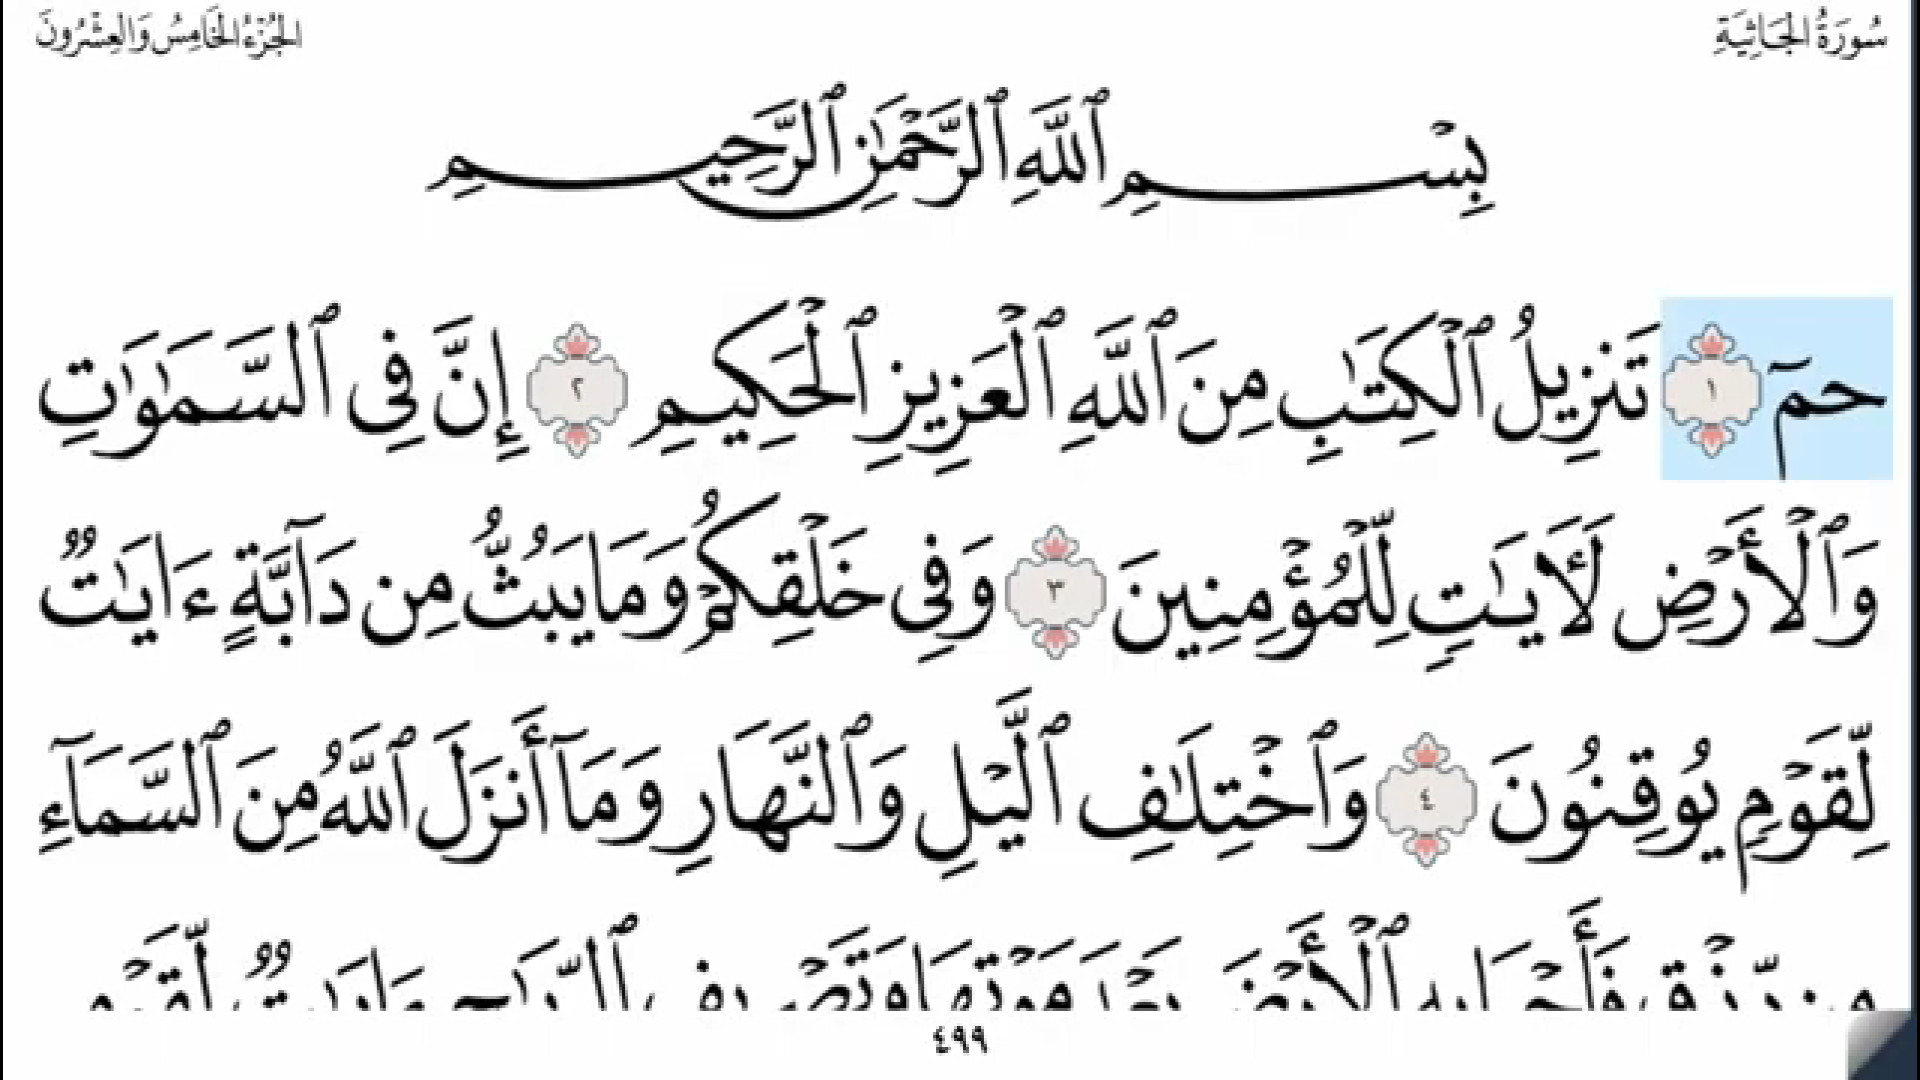 سُورَةُ الْجَاثِيَةِ
الجُزْءُ الْخَامِسُ وَالْعِشْرُونَ
بِسْمِ ٱللَّهِ ٱلرَّحْمَٰنِ ٱلرَّحِيمِ
حمٓ ١ تَنزِيلُ ٱلْكِتَٰبِ مِنَ ٱللَّهِ ٱلْعَزِيزِ ٱلْحَكِيمِ ٢ إِنَّ فِى ٱلسَّمَٰوَٰتِ
وَٱلْأَرْضِ لَءَايَٰتٍ لِّلْمُؤْمِنِينَ ٣ وَفِى خَلْقِكُمْ وَمَا يَبُثُّ مِن دَآبَّةٍ ءَايَٰتٌ
لِّقَوْمٍ يُوقِنُونَ ٤ وَٱخْتِلَٰفِ ٱلَّيْلِ وَٱلنَّهَارِ وَمَآ أَنزَلَ ٱللَّهُ مِنَ ٱلسَّمَآءِ
مِن رِّزْقٍ فَأَحْيَا بِهِ ٱلْأَرْضَ بَعْدَ مَوْتِهَا وَتَصْرِيفِ ٱلرِّيَٰحِ ءَايَٰتٌ لِّقَوْمٍ
٤٩٩